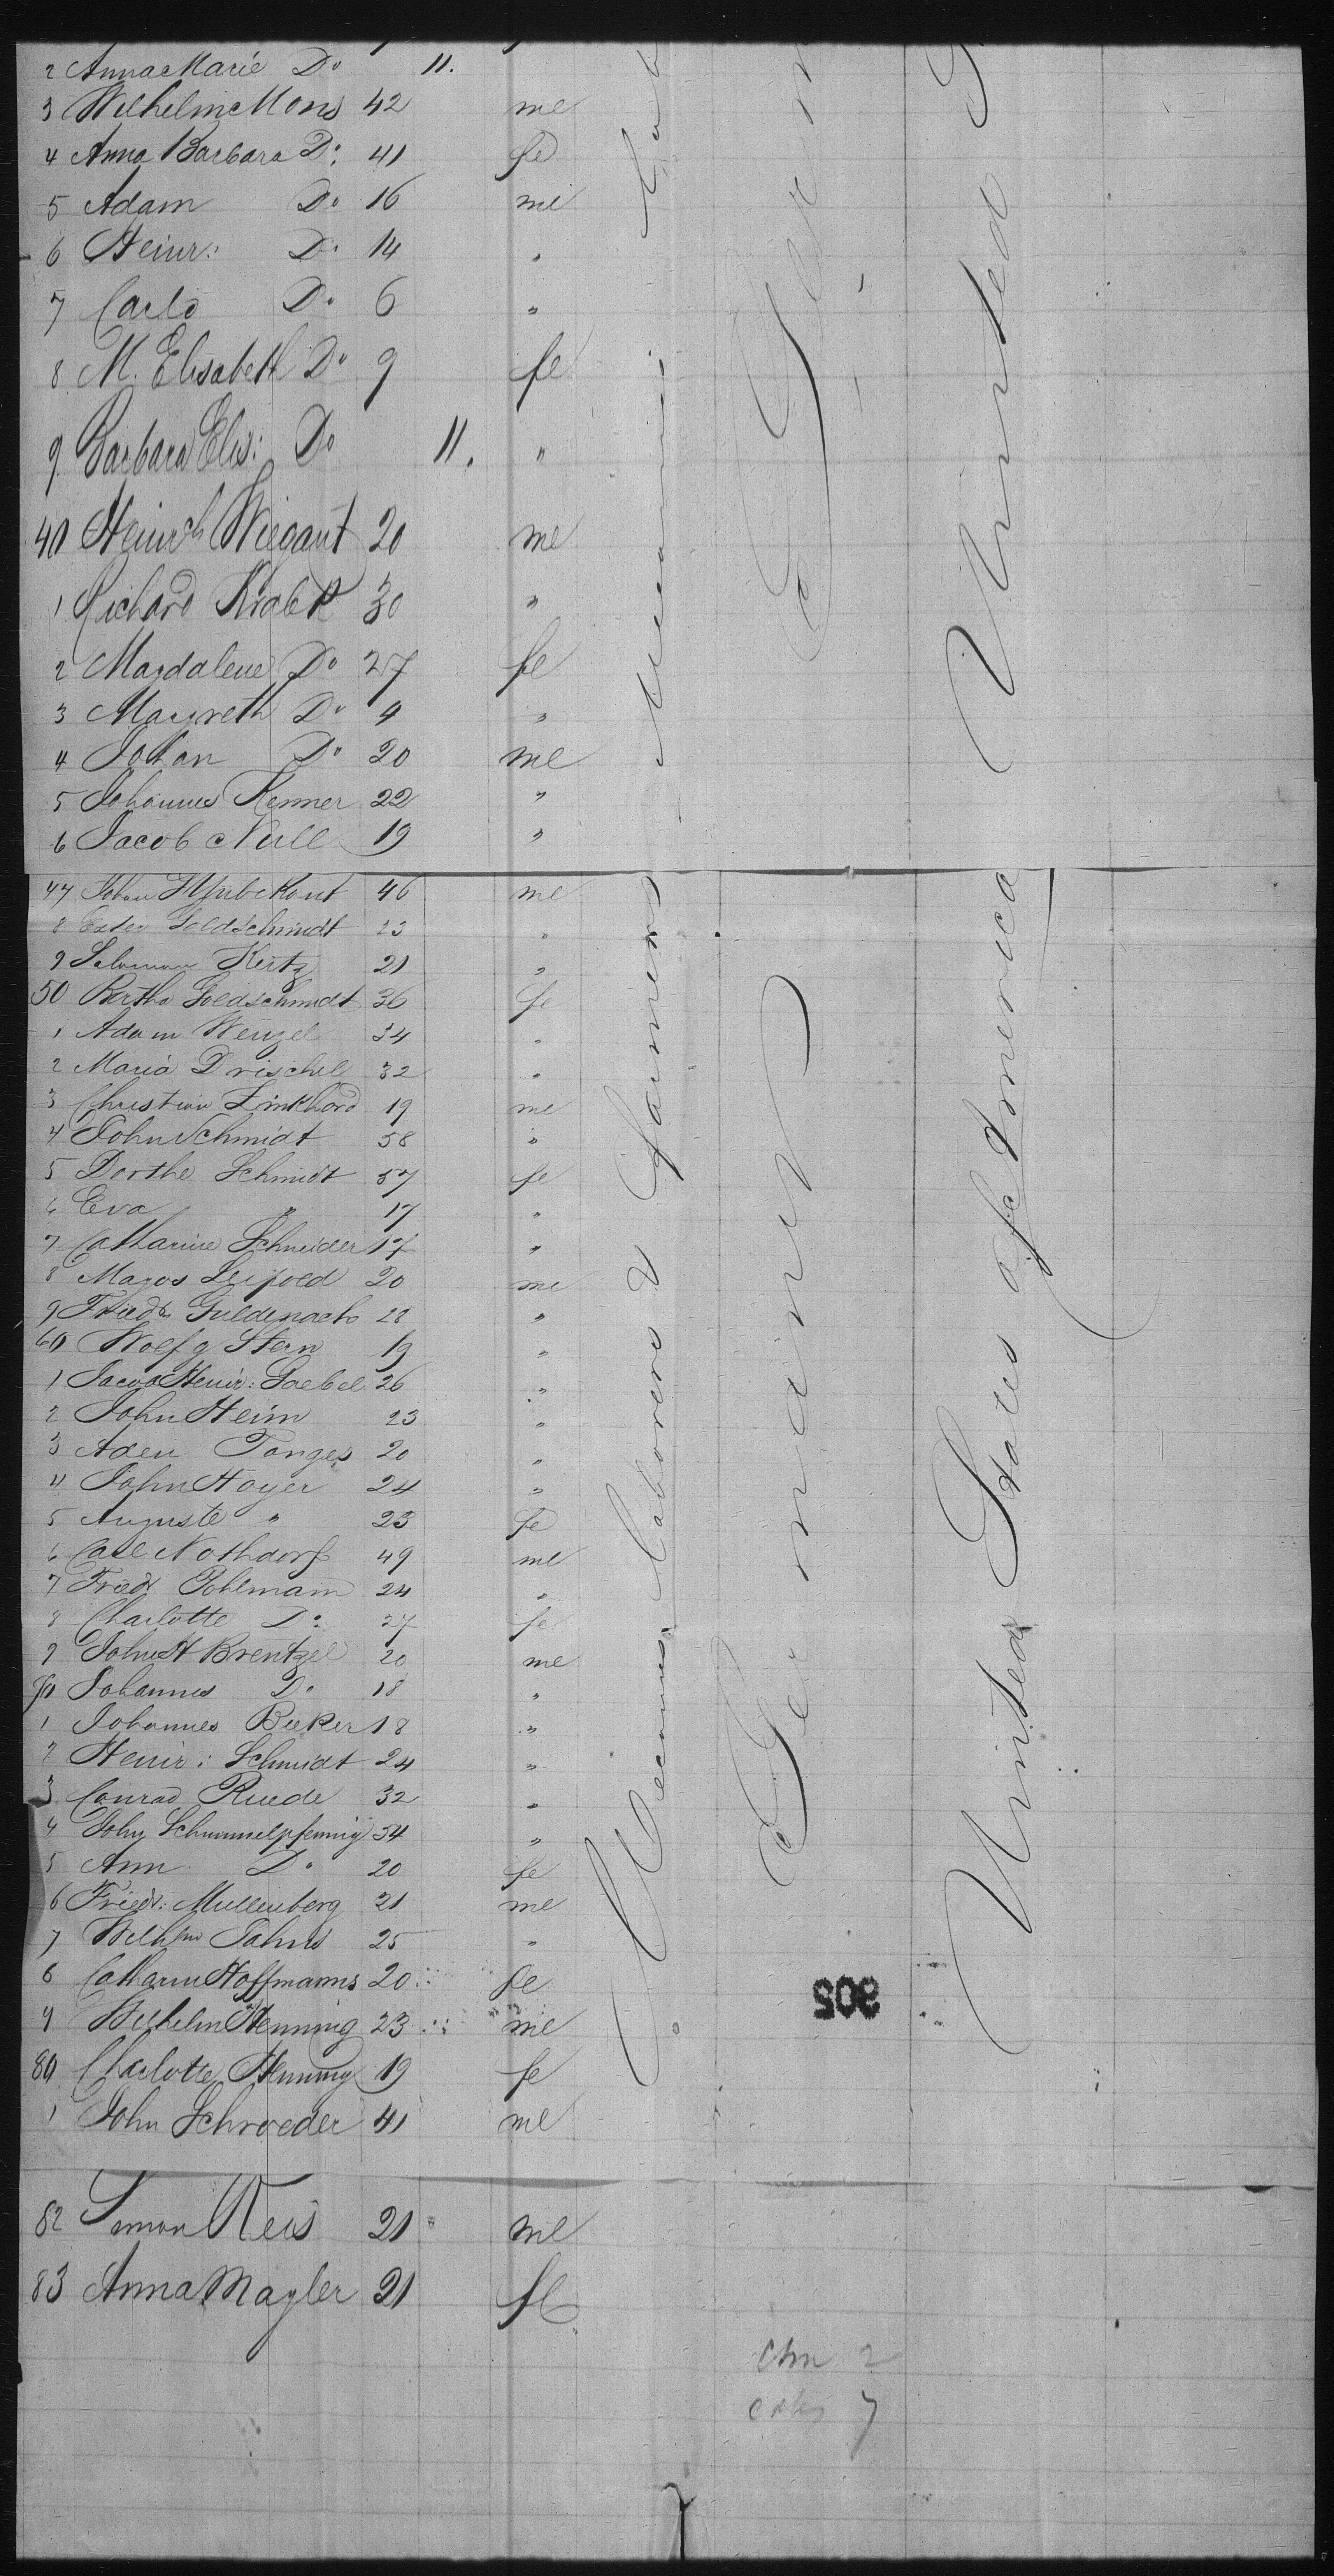 2 Anna Marie Do 11.
3 Wilhelm Mons 42 me
4 Anna Barbara Do 41 fe
5 Adam Do 16 me
6 Heinr: Do 14 "
7 Carlo Do 6 "
8 M. Elisabeth Do 9 fe
9 Barbara Elis: Do 11. "
40 Heinrch Wiegant 20 me
1 Richard 30 "
2 Magdalene Do 27 fe
3 Margreth Do 4 "
4 Johan Do 20 me
5 Johannes Renner 22 "
6 Jacob Null 19 "
47 John 46 me
8 Goldschmidt 23 "
9 Salomon Kertz 21 "
50 Bertha Goldschmidt 36 fe
1 Adam Wenzel 34 "
2 Maria Drischel 32 "
3 Christian Linkhard 19 me
4 John Schmidt 58 "
5 Dorthe Schmidt 57 fe
6 Eva " 17 "
7 Catharine Schneider 17 "
8 Leipold 20 me
9 Friedr Guldenach 28 "
60 Wolf g Stern 19 "
1 Jacob Heinr: Goebel 26 "
2 John Heim 23 "
3 Adeu Tonges 20 "
4 John Hoyer 24 "
5 Auguste " 23 fe
6 Carl Nothdorf 49 me
7 Friedr Pohlmann 24 "
8 Charlotte Do 27 fe
9 John H Brentzel 20 me
70 Johannes Do 18 "
1 Johannes Beeker 18 "
2 Heinr: Schmidt 24 "
3 Conrad Ruede 32 "
4 John Schimmelpfennig 34 "
5 Ann Do 20 fe
6 Friedr: Mullenberg 21 me
7 Wilhlm Jahns 25 "
8 Catharin Hoffmanns 20 fe
9 Wilhelm Henning 23 me
80 Charlotte Henning 19 fe
1 John Schroeder 41 me
82 Simon Reis 21 me
83 Anna Magler 21 fe
Mecanics, Laborers & Farmers
Germany
United States of America
United
305
Chn 2
7